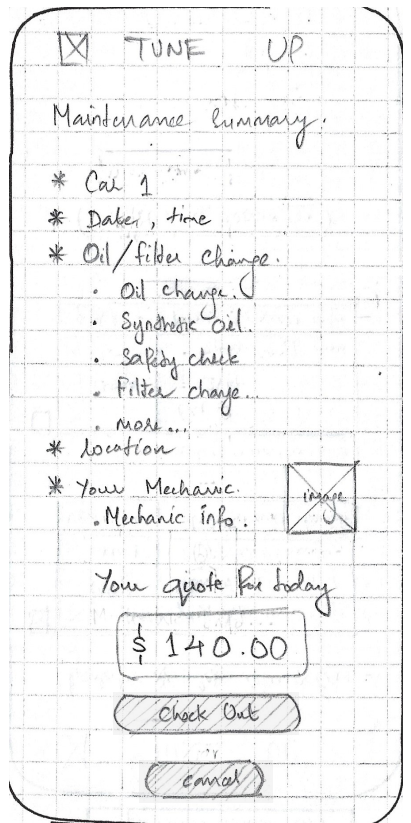 TUNE UP
Maintenance Summary.
* Car 1
* Date, time
* Oil/filter change.
. Oil change.
. Synthetic Oil.
. Safety check
. Filter change...
. more...
* Location
* Your Mechanic.
image
. Mechanic info.
Your quote for today
$ 140.00
Check Out
cancel